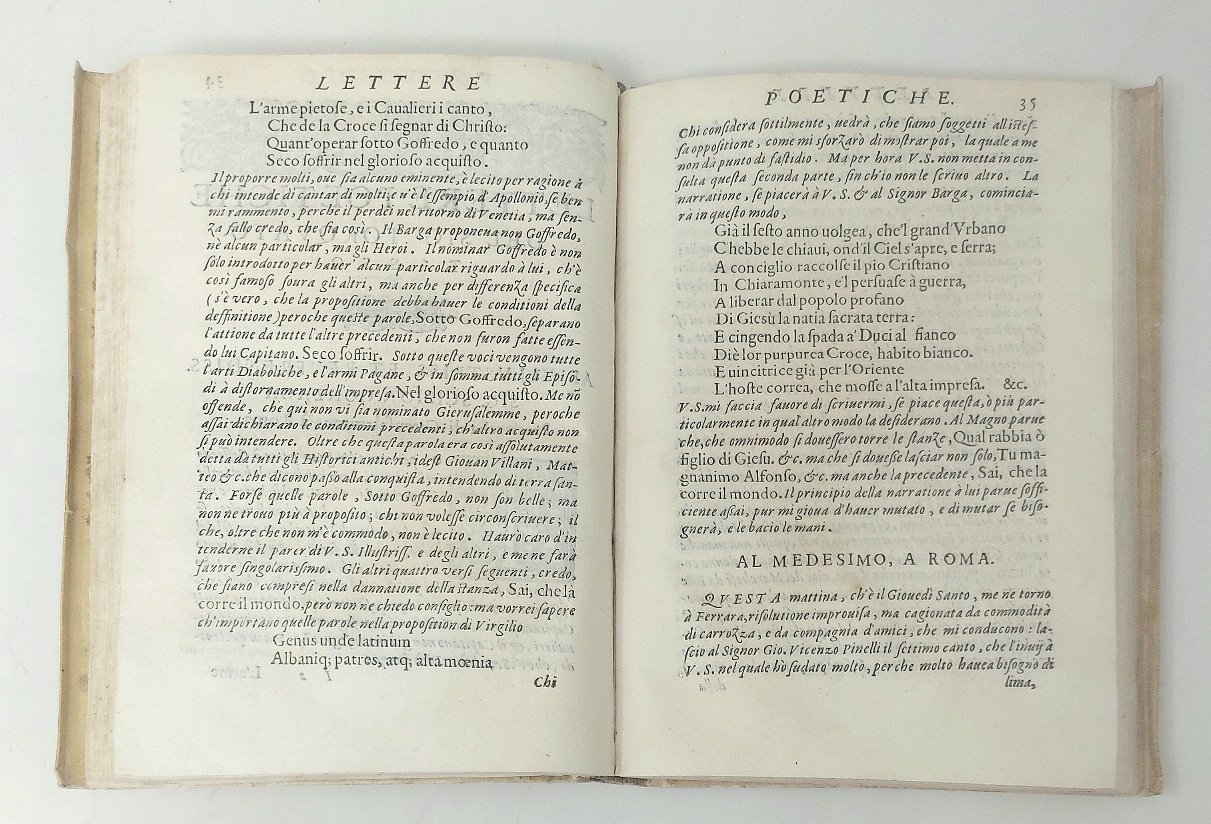 LETTERE
L'arme pietose, e i Caualieri i canto,
Che de la Croce si segnar di Christo:
Quant'operar sotto Goffredo, e quanto
Seco soffrir nel glorioso acquisto.
Il proporre molti, oue sia alcuno eminente, è lecito per ragione à
chi intende di cantar di molti; e u'è l'essempio d'Apollonio, se ben
mi rammento, perche il perdei nel ritorno di Venetia, ma sen-
za fallo credo, che sia così. Il Barga proponeua non Goffredo,
nè alcun particolar, ma gli Heroi. Il nominar Goffredo è non
solo introdotto per hauer' alcun particolar riguardo à lui, ch'è
così famoso soura gli altri, ma anche per differenza specifica
(s'è vero, che la propositione debba hauer le conditioni della
deffinitione) peroche queste parole, Sotto Goffredo, separano
l'attione da tutte l'altre precedenti, che non furon fatte essen-
do lui Capitano. Seco soffrir. Sotto queste voci vengono tutte
l'arti Diaboliche, e l'armi Pagane, & in somma tutti gli Episo-
di à distornamento dell'impresa. Nel glorioso acquisto. Me nõ
offende, che qui non vi sia nominato Gierusalemme, peroche
assai dichiarano le conditioni precedenti; ch'altro acquisto non
si può intendere. Oltre che questa parola era così assolutamente
detta da tutti gli Historici antichi, idest Giouan Villani, Mat-
teo &c. che dicono passo alla conquista, intendendo di terra san-
ta. Forse quelle parole, Sotto Goffredo, non son belle; ma
non ne trouo più à proposito; chi non volesse circonscriuere; il
che, oltre che non m'è commodo, non è lecito. Hauro caro d'in
tenderne il parer di V. S. Illustriss. e degli altri, e me ne farà
fauore singolarissimo. Gli altri quattro versi seguenti, credo,
che siano compresi nella dannatione della stanza, Sai, che là
corre il mondo, però non ne chiedo consiglio: ma vorrei sapere
ch'importano quelle parole nella proposition di Virgilio
Genus unde latinum
Albaniq; patres, atq; alta mœnia
Chi
POETICHE. 35
Chi considera sottilmente, uedrà, che siamo soggetti all'istes-
sa oppositione, come mi sforzarò di mostrar poi, la quale a me
non dà punto di fastidio. Ma per hora V. S. non metta in con-
sulta questa seconda parte, sin ch'io non le scriuo altro. La
narratione, se piacerà à V. S. & al Signor Barga, comincia-
rà in questo modo,
Già il sesto anno uolgea, che'l grand'Vrbano
C'hebbe le chiaui, ond'il Ciel s'apre, e serra;
A conciglio raccolse il pio Cristiano
In Chiaramonte, e'l persuase à guerra,
A liberar dal popolo profano
Di Giesù la natia sacrata terra:
E cingendo la spada a' Duci al fianco
Diè lor purpurea Croce, habito bianco.
E uincitrice già per l'Oriente
L'hoste correa, che mosse a l'alta impresa. &c.
V. S. mi faccia fauore di scriuermi, se piace questa, ò più par-
ticolarmente in qual'altro modo la desiderano. Al Magno parue
che, che omnimodo si douessero torre le stanze, Qual rabbia ò
figlio di Giesù. &c. ma che si douesse lasciar non solo, Tu ma-
gnanimo Alfonso, &c. ma anche la precedente, Sai, che la
corre il mondo. Il principio della narratione à lui parue soffi-
ciente assai, pur mi gioua d'hauer mutato, e di mutar se biso-
gnerà, e le bacio le mani.
AL MEDESIMO, A ROMA.
QVESTA mattina, ch'è il Giouedì Santo, me ne torno
à Ferrara, risolutione improuisa, ma cagionata da commodità
di carrozza, e da compagnia d'amici, che mi conducono: la-
scio al Signor Gio. Vicenzo Pinelli il settimo canto, che l'inuij à
V. S. nel quale hò sudato molto, perche molto hauea bisogno di
lima,